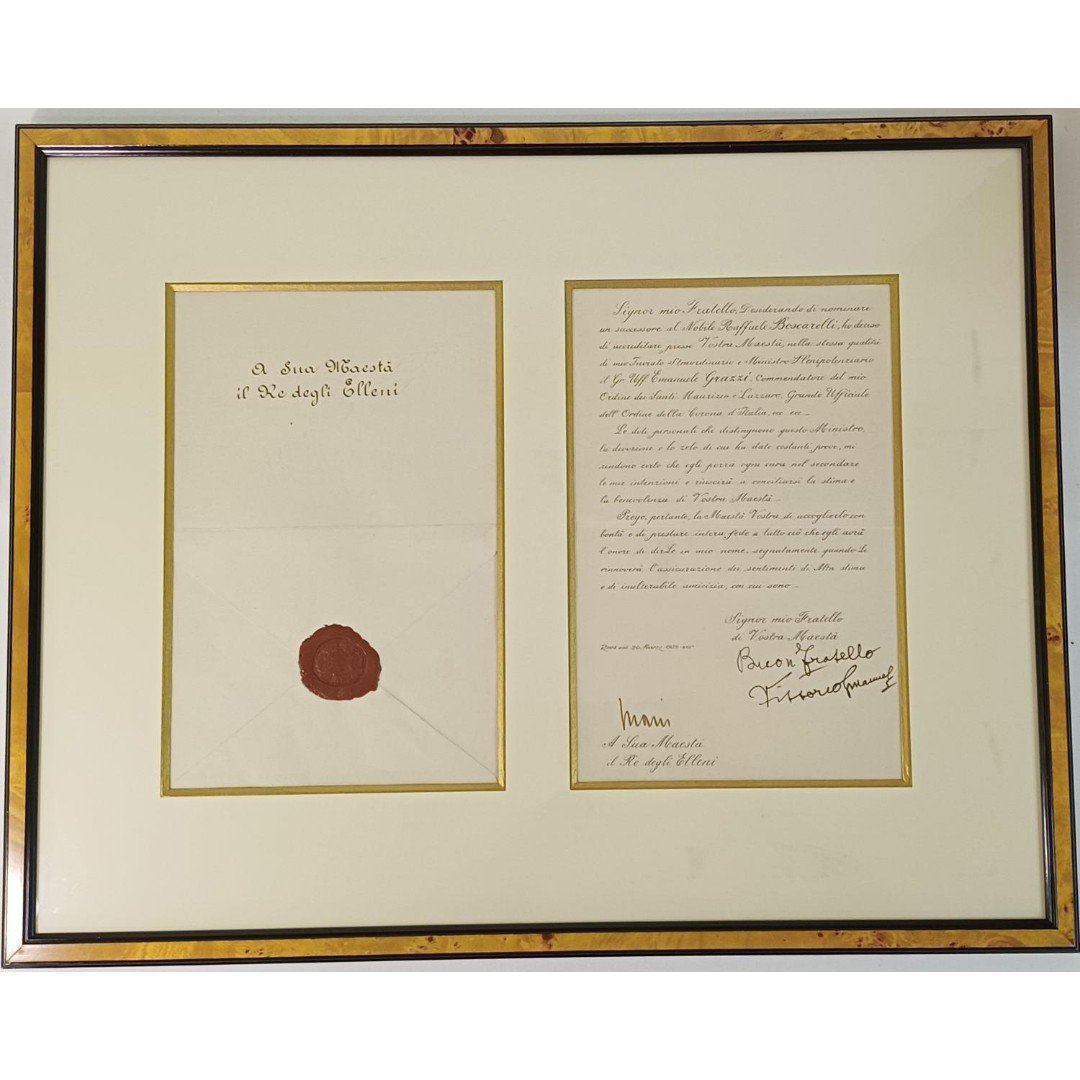 A Sua Maestà
il Re degli Elleni
Signor mio Fratello, Desiderando di nominare
un successore al Nobile Raffaele Boscarelli, ho deciso
di accreditare presso Vostra Maestà, nella stessa qualità
di mio Inviato Straordinario e Ministro Plenipotenziario
il Gr. Uff. Emanuele Grazzi, Commendatore del mio
Ordine dei Santi Maurizio e Lazzaro, Grande Ufficiale
dell'Ordine della Corona d'Italia, ecc. ecc.
Le doti personali che distinguono questo Ministro,
la devozione e lo zelo di cui ha dato costanti prove, mi
rendono certo che egli porrà ogni cura nel secondare
le mie intenzioni e riuscirà a conciliarsi la stima e
la benevolenza di Vostra Maestà.
Prego, pertanto, la Maestà Vostra di accoglierlo con
bontà e di prestare intera fede a tutto ciò che egli avrà
l'onore di dirLe in mio nome, segnatamente quando Le
rinnoverà l'assicurazione dei sentimenti di Alta stima
e di inalterabile amicizia, con cui sono
Signor mio Fratello
di Vostra Maestà
Roma
Buon Fratello
Vittorio Emanuele
A Sua Maestà
il Re degli Elleni